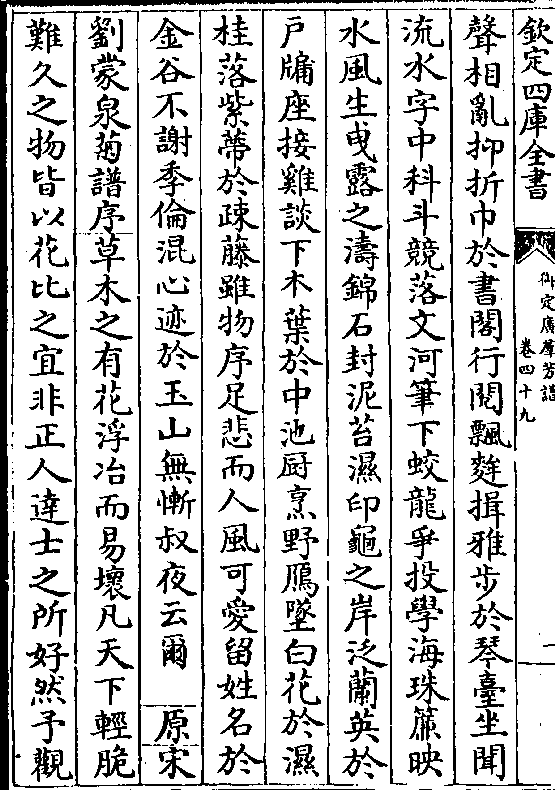 欽定四庫全書
御定廣羣芳譜
卷四十九
一
聲相亂抑折巾於書閣行閱飄䴰揖雅步於琴臺坐聞
流水字中科斗競落文河筆下蛟龍爭投學海珠簾映
水風生曳露之濤錦石封泥苔濕印龜之岸泛蘭英於
戸牖座接雞談下木葉於中池厨烹野鴈墜白花於濕
桂落紫蔕於疎藤雖物序足悲而人風可愛留姓名於
金谷不謝季倫混心迹於玉山無慚叔夜云爾 原宋
劉蒙泉菊譜序草木之有花浮冶而易壞凡天下輕脆
難久之物皆以花比之宜非正人達士之所好然予觀